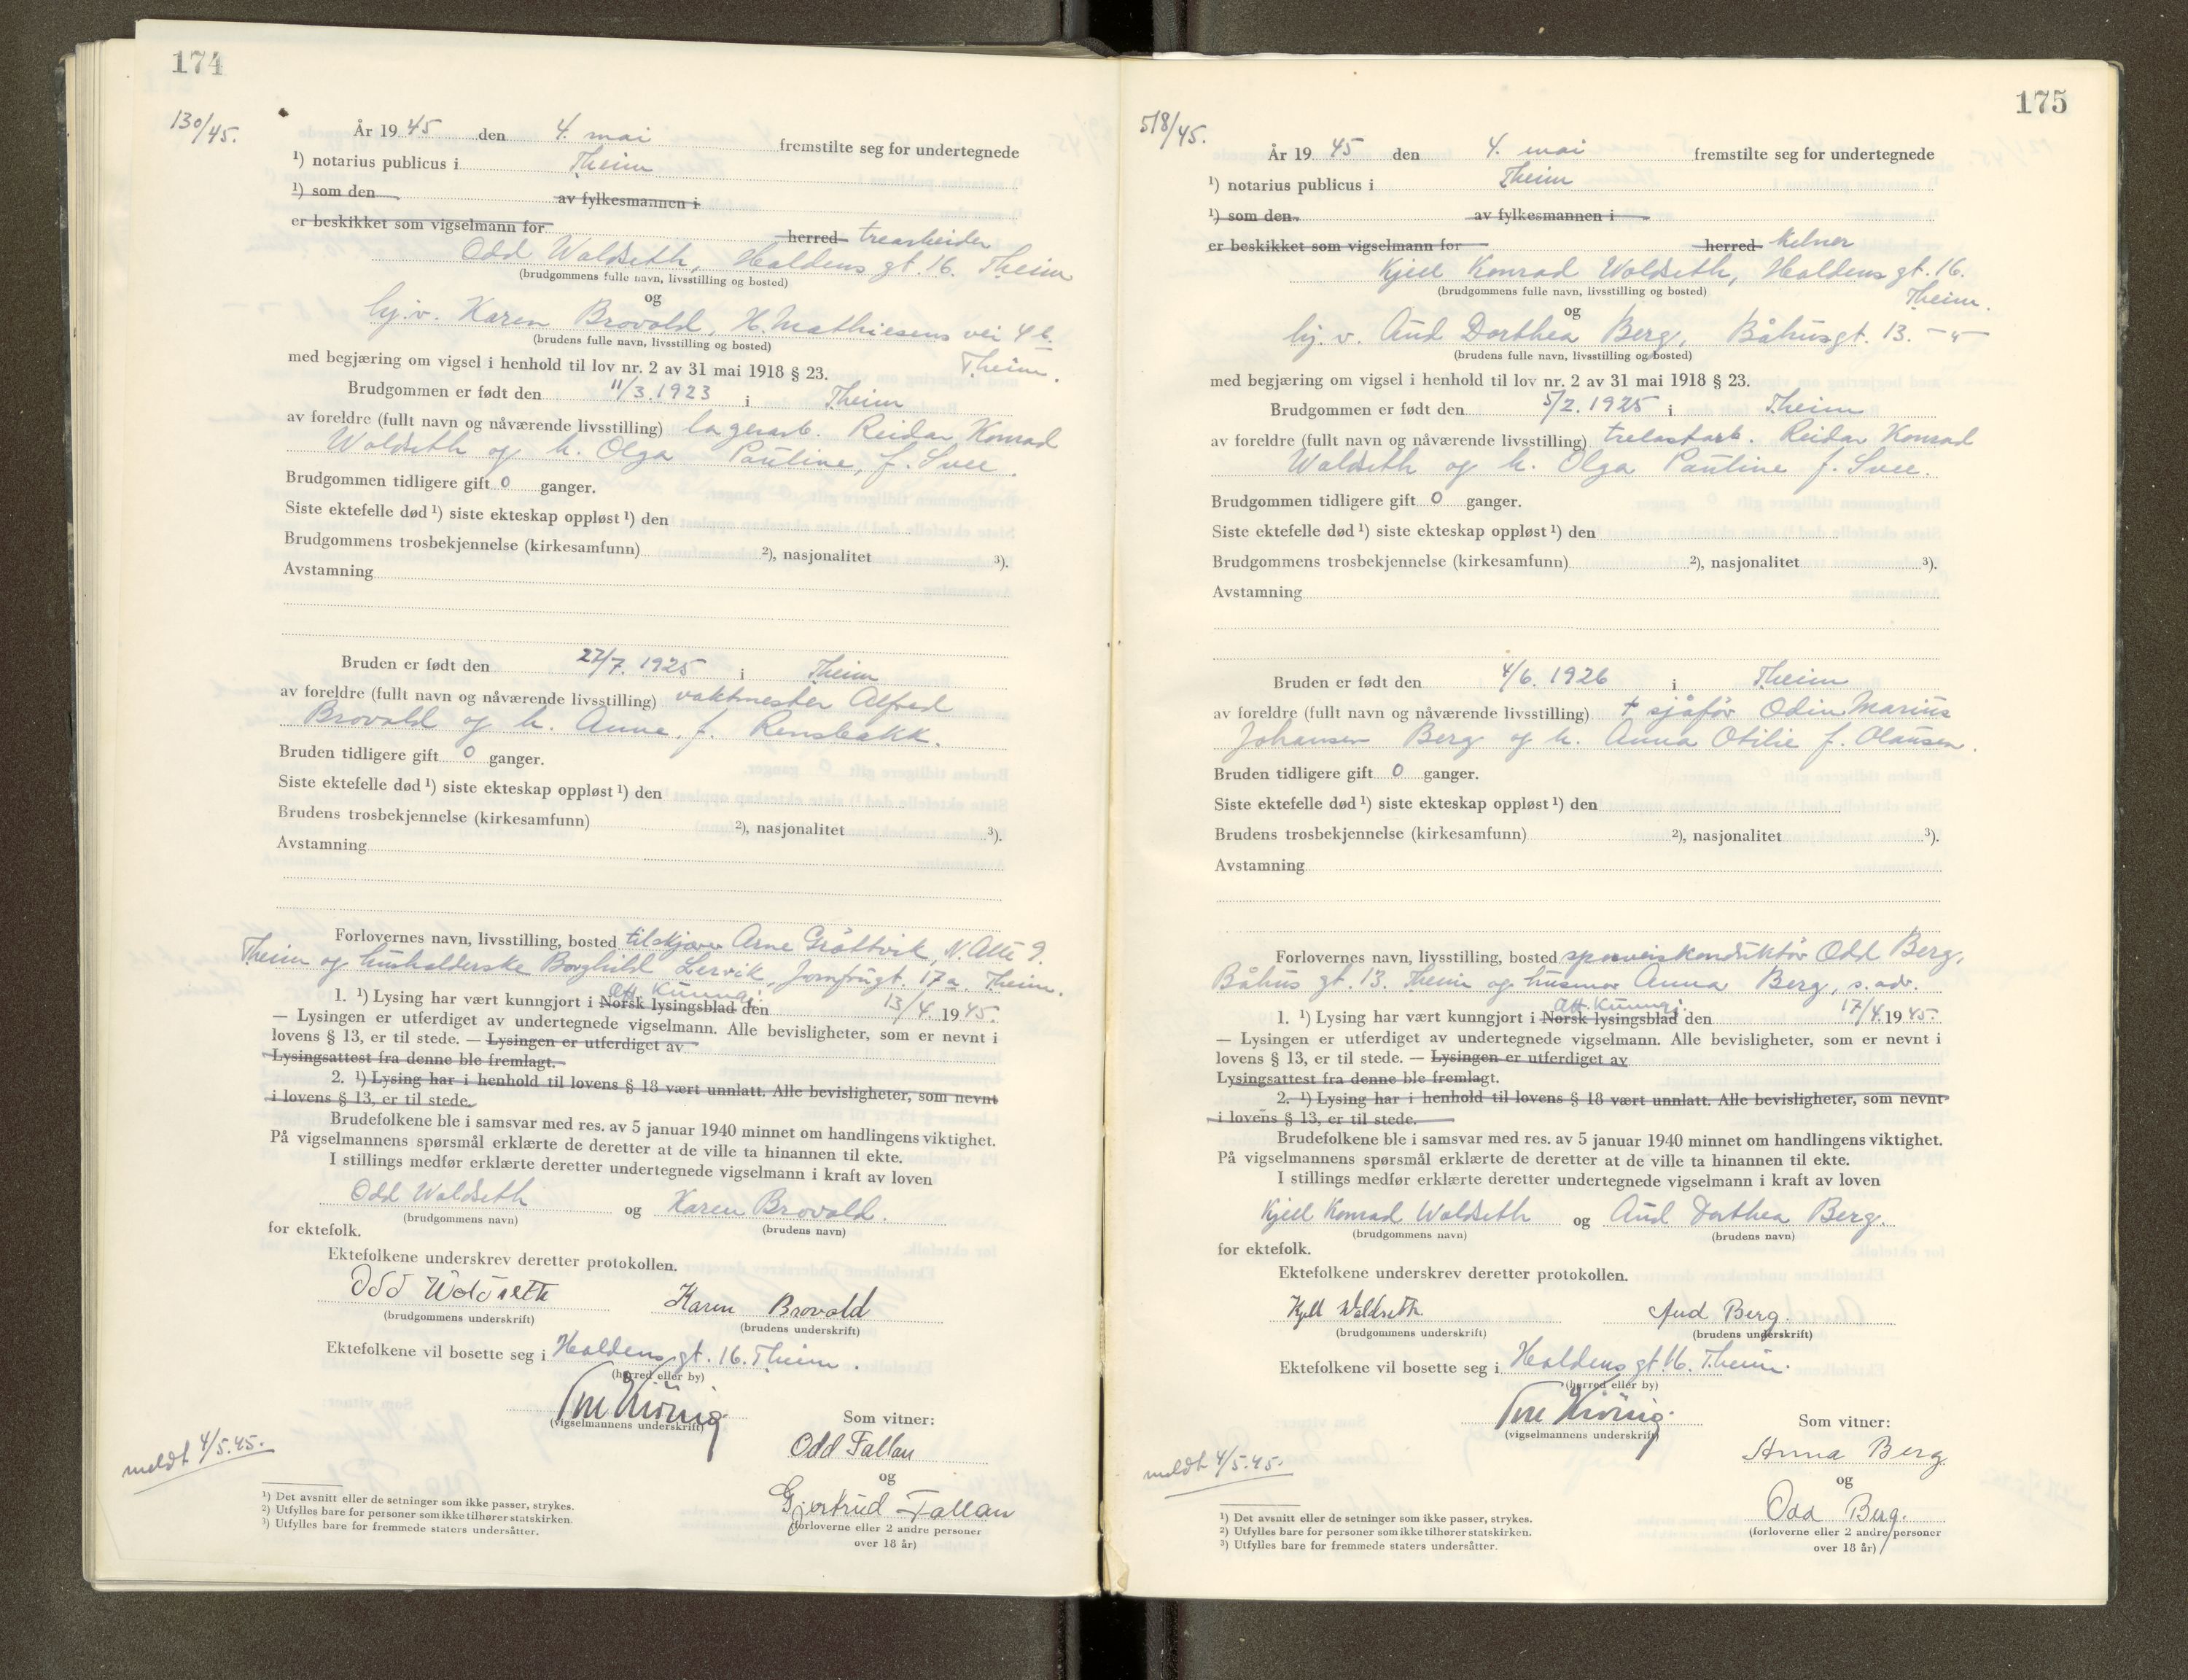 174
130/45.
År 1945 den 4. mai fremstilte seg for undertegnede
¹) notarius publicus i Theim
¹) som den av fylkesmannen i
er beskikket som vigselmann for herred trearbeider
Odd Woldseth, Haldens gt. 16. Theim
(brudgommens fulle navn, livsstilling og bosted)
og
hj.v. Karen Brovold, H. Mathiesens vei 4 b.
(brudens fulle navn, livsstilling og bosted)
Theim.
med begjæring om vigsel i henhold til lov nr. 2 av 31 mai 1918 § 23.
Brudgommen er født den 11/3. 1923 i Theim
av foreldre (fullt navn og nåværende livsstilling) lagerarb. Reidar Konrad
Woldseth og h. Olga Pauline, f. Svee.
Brudgommen tidligere gift 0 ganger.
Siste ektefelle død ¹) siste ekteskap oppløst ¹) den
Brudgommens trosbekjennelse (kirkesamfunn) ²), nasjonalitet ³).
Avstamning
Bruden er født den 27/7. 1925 i Theim
av foreldre (fullt navn og nåværende livsstilling) vaktmester Alfred
Brovold og h. Anne. f. Rensbakk.
Bruden tidligere gift 0 ganger.
Siste ektefelle død ¹) siste ekteskap oppløst ¹) den
Brudens trosbekjennelse (kirkesamfunn) ²), nasjonalitet ³).
Avstamning
Forlovernes navn, livsstilling, bosted tilskjærer Arne Gråttvik, N. Allé 9.
Theim og husholderske Borghild Lervik, Jomfrugt. 17a. Theim.
Off. Kunngj.
1. ¹) Lysing har vært kunngjort i Norsk lysingsblad den 13/4. 1945.
— Lysingen er utferdiget av undertegnede vigselmann. Alle bevisligheter, som er nevnt i
lovens § 13, er til stede. — Lysingen er utferdiget av
Lysingsattest fra denne ble fremlagt.
2. ¹) Lysing har i henhold til lovens § 18 vært unnlatt. Alle bevisligheter, som nevnt
i lovens § 13, er til stede.
Brudefolkene ble i samsvar med res. av 5 januar 1940 minnet om handlingens viktighet.
På vigselmannens spørsmål erklærte de deretter at de ville ta hinannen til ekte.
I stillings medfør erklærte deretter undertegnede vigselmann i kraft av loven
Odd Woldseth og Karen Brovold.
(brudgommens navn) (brudens navn)
for ektefolk.
Ektefolkene underskrev deretter protokollen.
Odd Woldseth Karen Brovold
(brudgommens underskrift) (brudens underskrift)
Ektefolkene vil bosette seg i Haldens gt. 16. Theim.
(herred eller by)
(vigselmannens underskrift)
Som vitner:
Odd Fallan
og
Gjertrud Fallan
(forloverne eller 2 andre personer
over 18 år)
meldt 4/5.45.
¹) Det avsnitt eller de setninger som ikke passer, strykes.
²) Utfylles bare for personer som ikke tilhører statskirken.
³) Utfylles bare for fremmede staters undersåtter.
175
518/45.
År 1945 den 4. mai fremstilte seg for undertegnede
¹) notarius publicus i Theim
¹) som den av fylkesmannen i
er beskikket som vigselmann for herred kelner
Kjell Konrad Woldseth, Haldens gt. 16.
(brudgommens fulle navn, livsstilling og bosted)
Theim.
og
hj. v. Aud Dorthea Berg, Båhusgt. 13. — " —
(brudens fulle navn, livsstilling og bosted)
med begjæring om vigsel i henhold til lov nr. 2 av 31 mai 1918 § 23.
Brudgommen er født den 5/2. 1925 i Theim
av foreldre (fullt navn og nåværende livsstilling) trelastarb. Reidar Konrad
Woldseth og h. Olga Pauline f. Svee.
Brudgommen tidligere gift 0 ganger.
Siste ektefelle død ¹) siste ekteskap oppløst ¹) den
Brudgommens trosbekjennelse (kirkesamfunn) ²), nasjonalitet ³).
Avstamning
Bruden er født den 4/6. 1926 i Theim
av foreldre (fullt navn og nåværende livsstilling) † sjåfør Odin Marius
Johansen Berg og h. Anna Otilie f. Olausen.
Bruden tidligere gift 0 ganger.
Siste ektefelle død ¹) siste ekteskap oppløst ¹) den
Brudens trosbekjennelse (kirkesamfunn) ²), nasjonalitet ³).
Avstamning
Forlovernes navn, livsstilling, bosted sporveiskonduktør Odd Berg,
Båhus gt. 13. Theim og husmor Anna Berg, s. adr.
Off. Kunngj.
1. ¹) Lysing har vært kunngjort i Norsk lysingsblad den 17/4. 1945.
— Lysingen er utferdiget av undertegnede vigselmann. Alle bevisligheter, som er nevnt i
lovens § 13, er til stede. — Lysingen er utferdiget av
Lysingsattest fra denne ble fremlagt.
2. ¹) Lysing har i henhold til lovens § 18 vært unnlatt. Alle bevisligheter, som nevnt
i lovens § 13, er til stede.
Brudefolkene ble i samsvar med res. av 5 januar 1940 minnet om handlingens viktighet.
På vigselmannens spørsmål erklærte de deretter at de ville ta hinannen til ekte.
I stillings medfør erklærte deretter undertegnede vigselmann i kraft av loven
Kjell Konrad Woldseth og Aud Dorthea Berg.
(brudgommens navn) (brudens navn)
for ektefolk.
Ektefolkene underskrev deretter protokollen.
Kjell Woldseth Aud Berg.
(brudgommens underskrift) (brudens underskrift)
Ektefolkene vil bosette seg i Haldens gt. 16. Theim.
(herred eller by)
(vigselmannens underskrift)
Som vitner:
Anna Berg
og
Odd Berg.
(forloverne eller 2 andre personer
over 18 år)
meldt 4/5.45.
¹) Det avsnitt eller de setninger som ikke passer, strykes.
²) Utfylles bare for personer som ikke tilhører statskirken.
³) Utfylles bare for fremmede staters undersåtter.